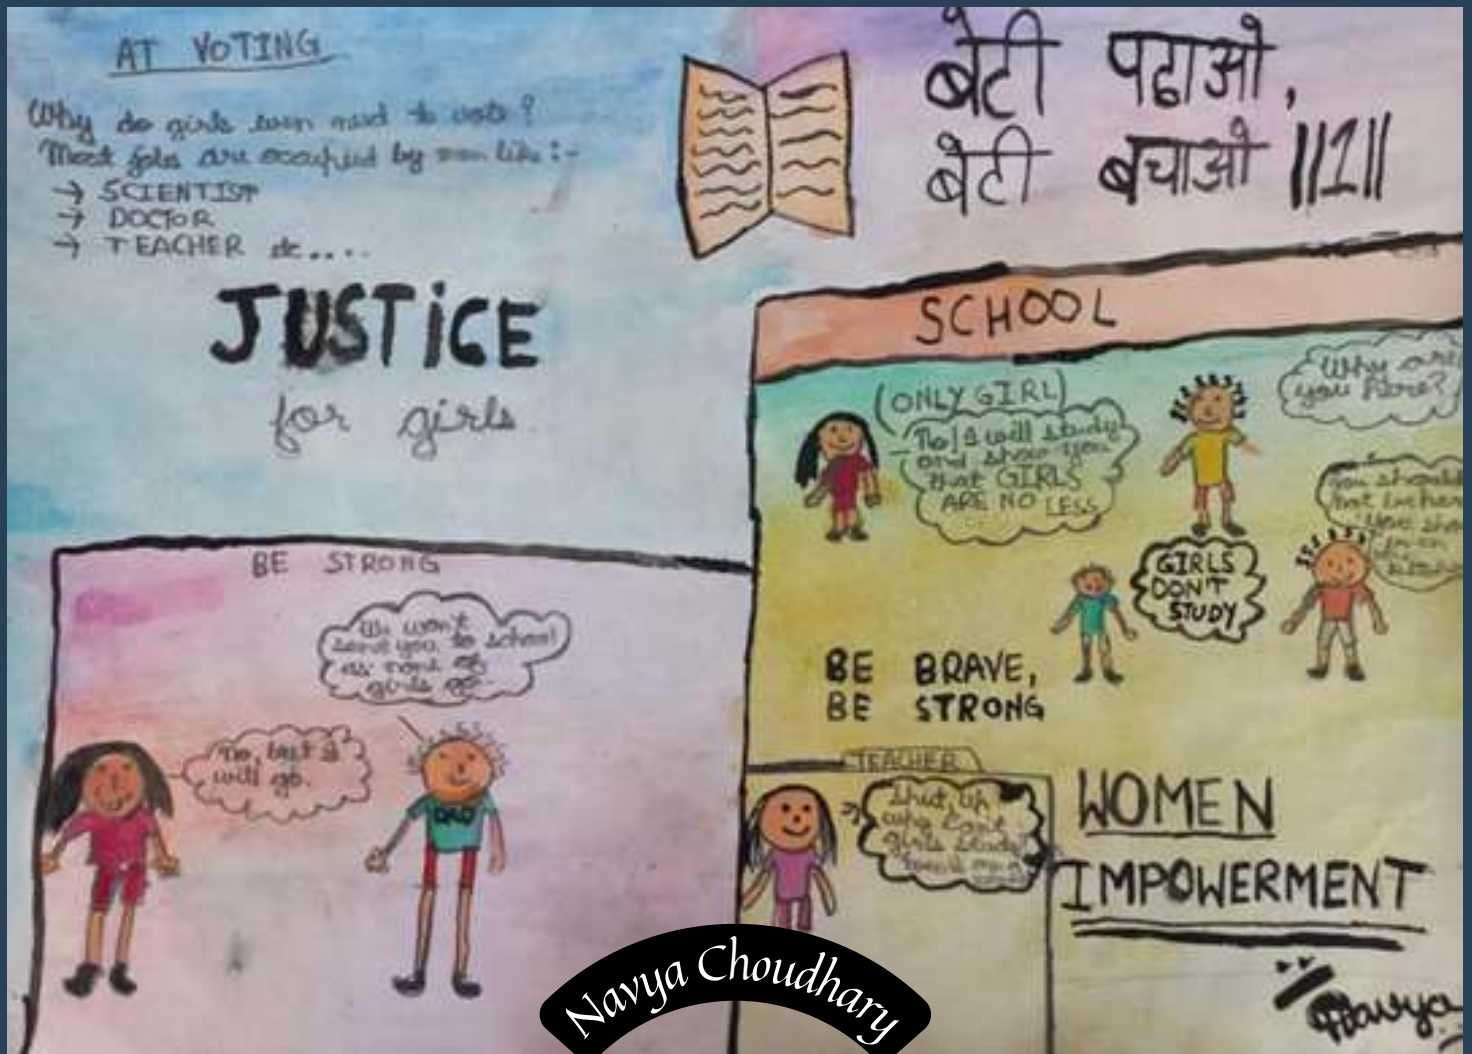 AT VOTING
Why do girls even need to vote?
Most jobs are occupied by men like :-
→ SCIENTIST
→ DOCTOR
→ TEACHER etc....
JUSTiCE
for girls
बेटी पढाओ,
बेटी बचाओ ||1||
SCHOOL
(ONLY GIRL)
No! I will study
and show you
that GIRLS
ARE NO LESS
Why are
you here?
You should
not
you
GIRLS
DON'T
STUDY
BE BRAVE,
BE STRONG
BE STRONG
We won't
send you to school
as none of
girls go.
No, but I
will go.
DAD
TEACHER
Shut up
why can't
girls study?
WOMEN
IMPOWERMENT
Navya
Navya Choudhary